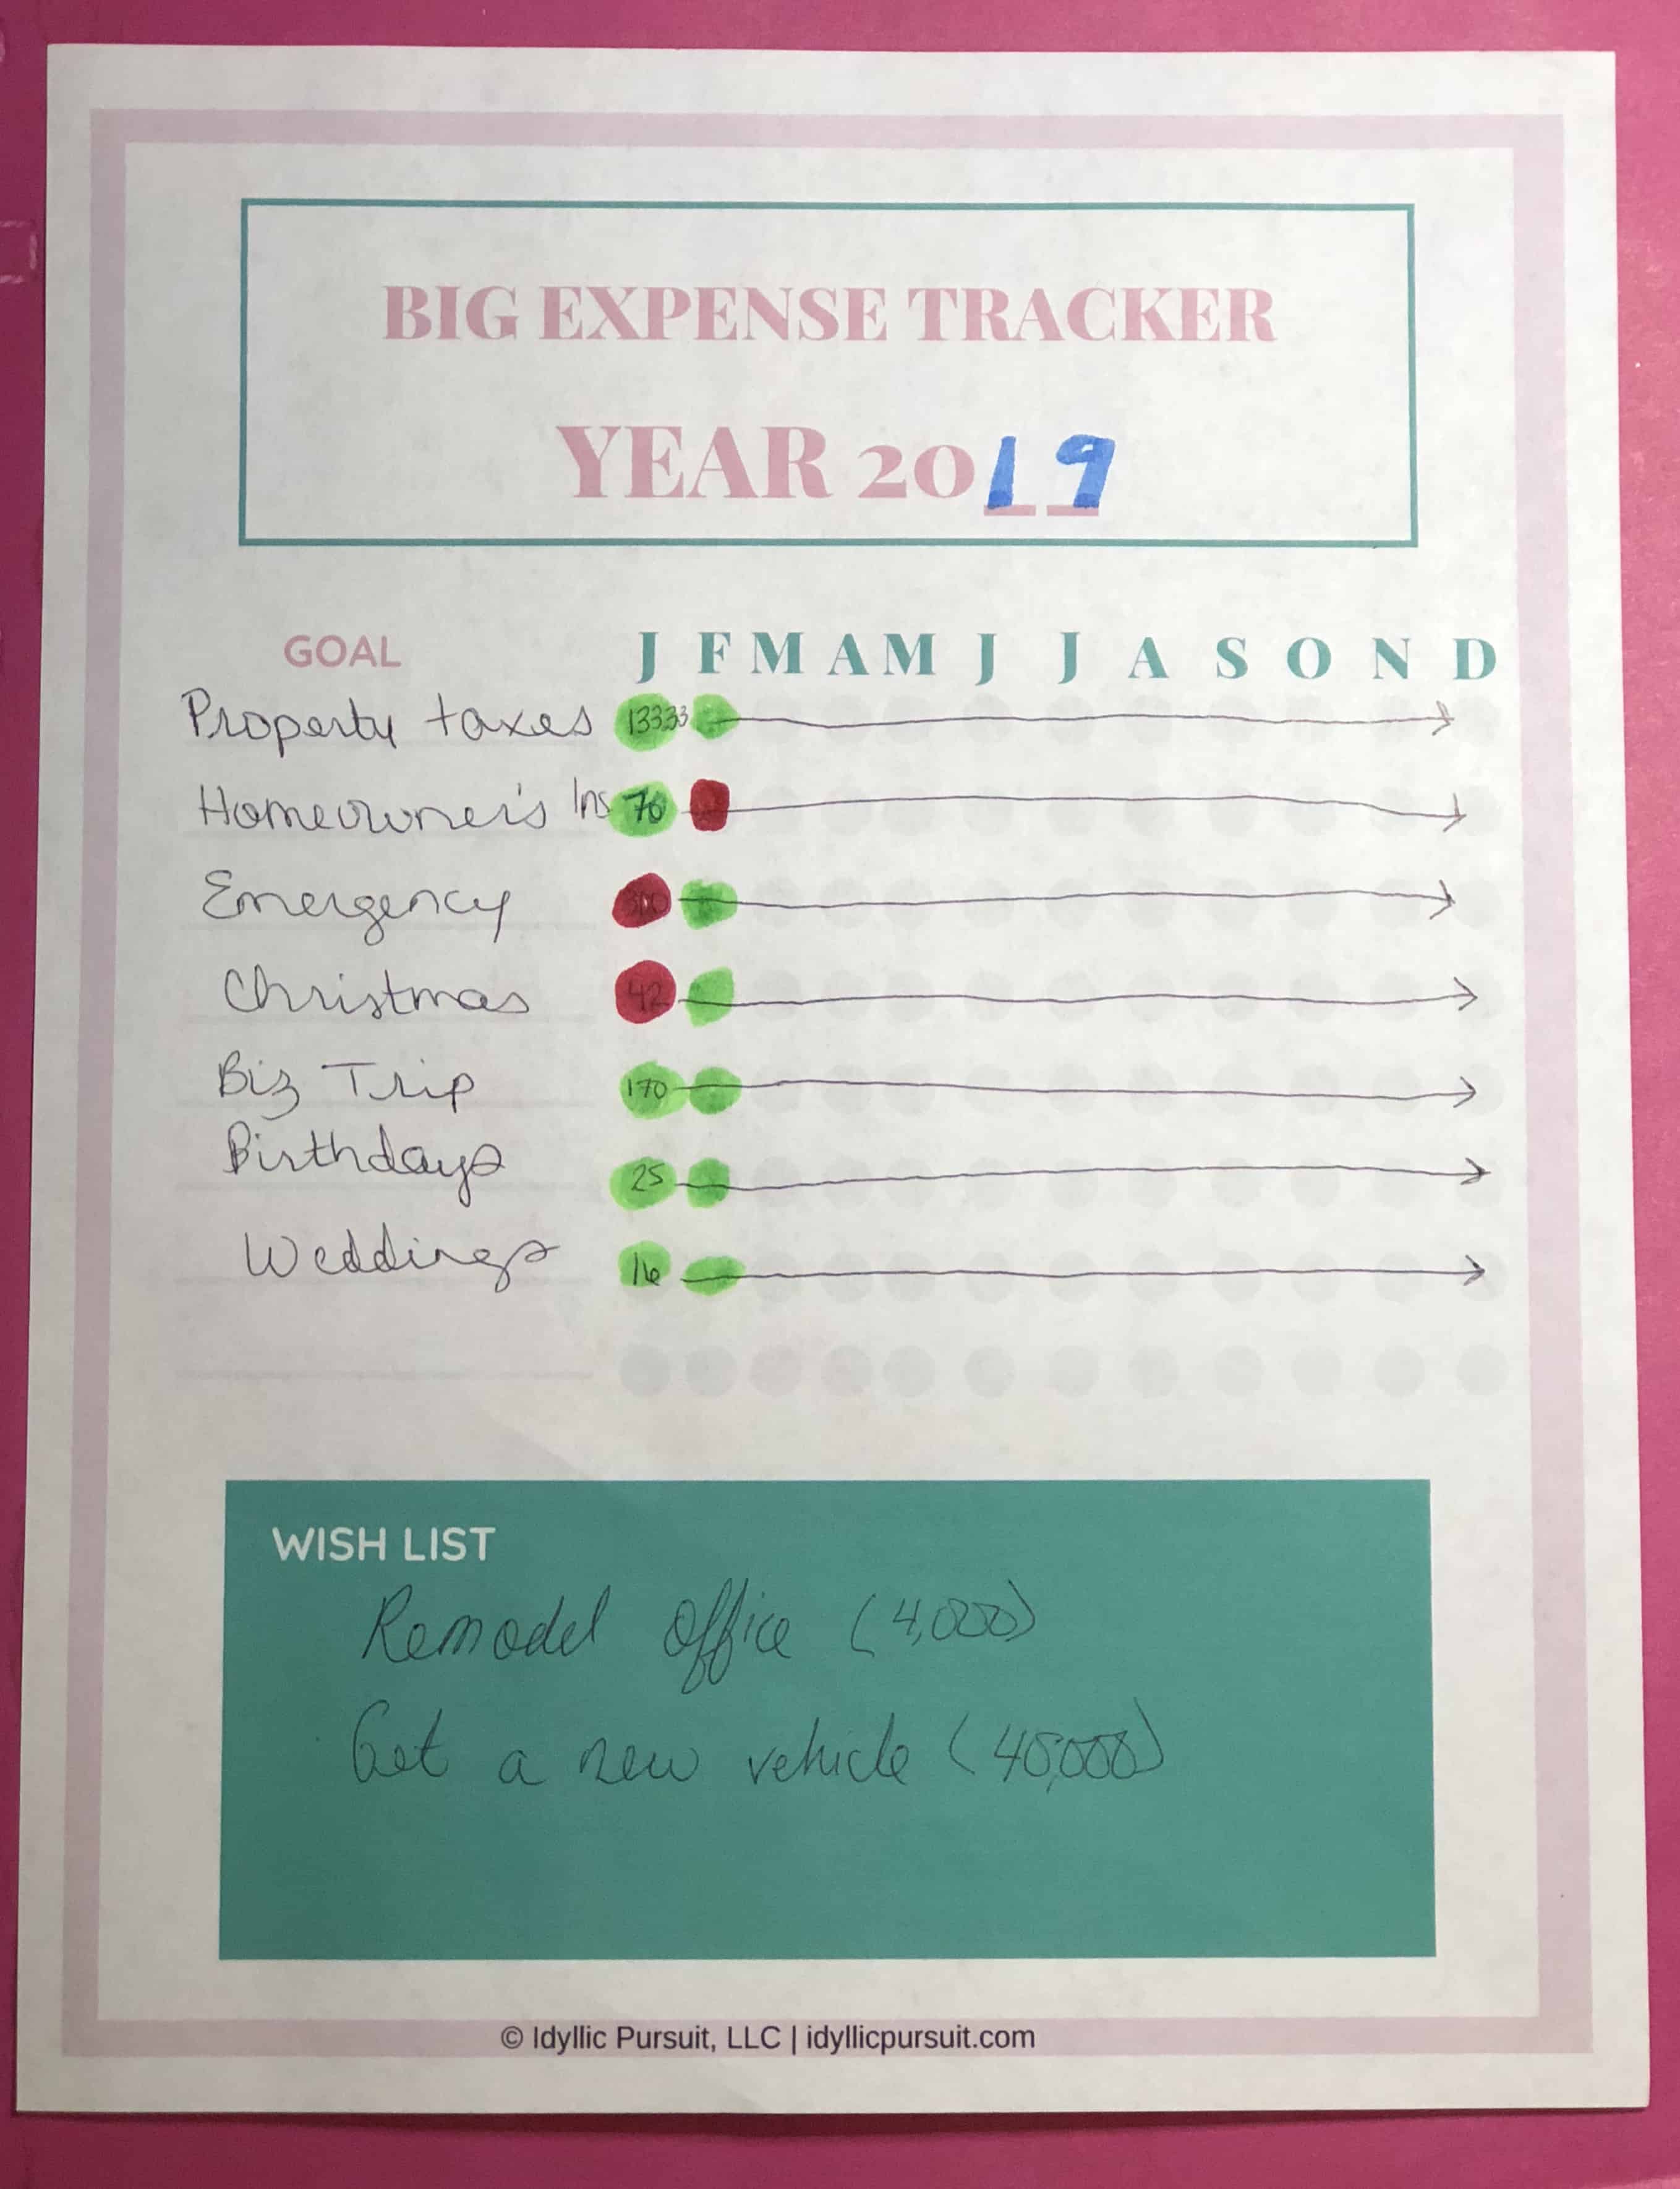 BIG EXPENSE TRACKER
YEAR 2019
GOAL J F M A M J J A S O N D
Property taxes 13333
Homeowner's Ins 76
Emergency 300
Christmas 42
Biz Trip 170
Birthdays 25
Weddings 16
WISH LIST
Remodel office (4,000)
Get a new vehicle (
© Idyllic Pursuit, LLC | idyllicpursuit.com